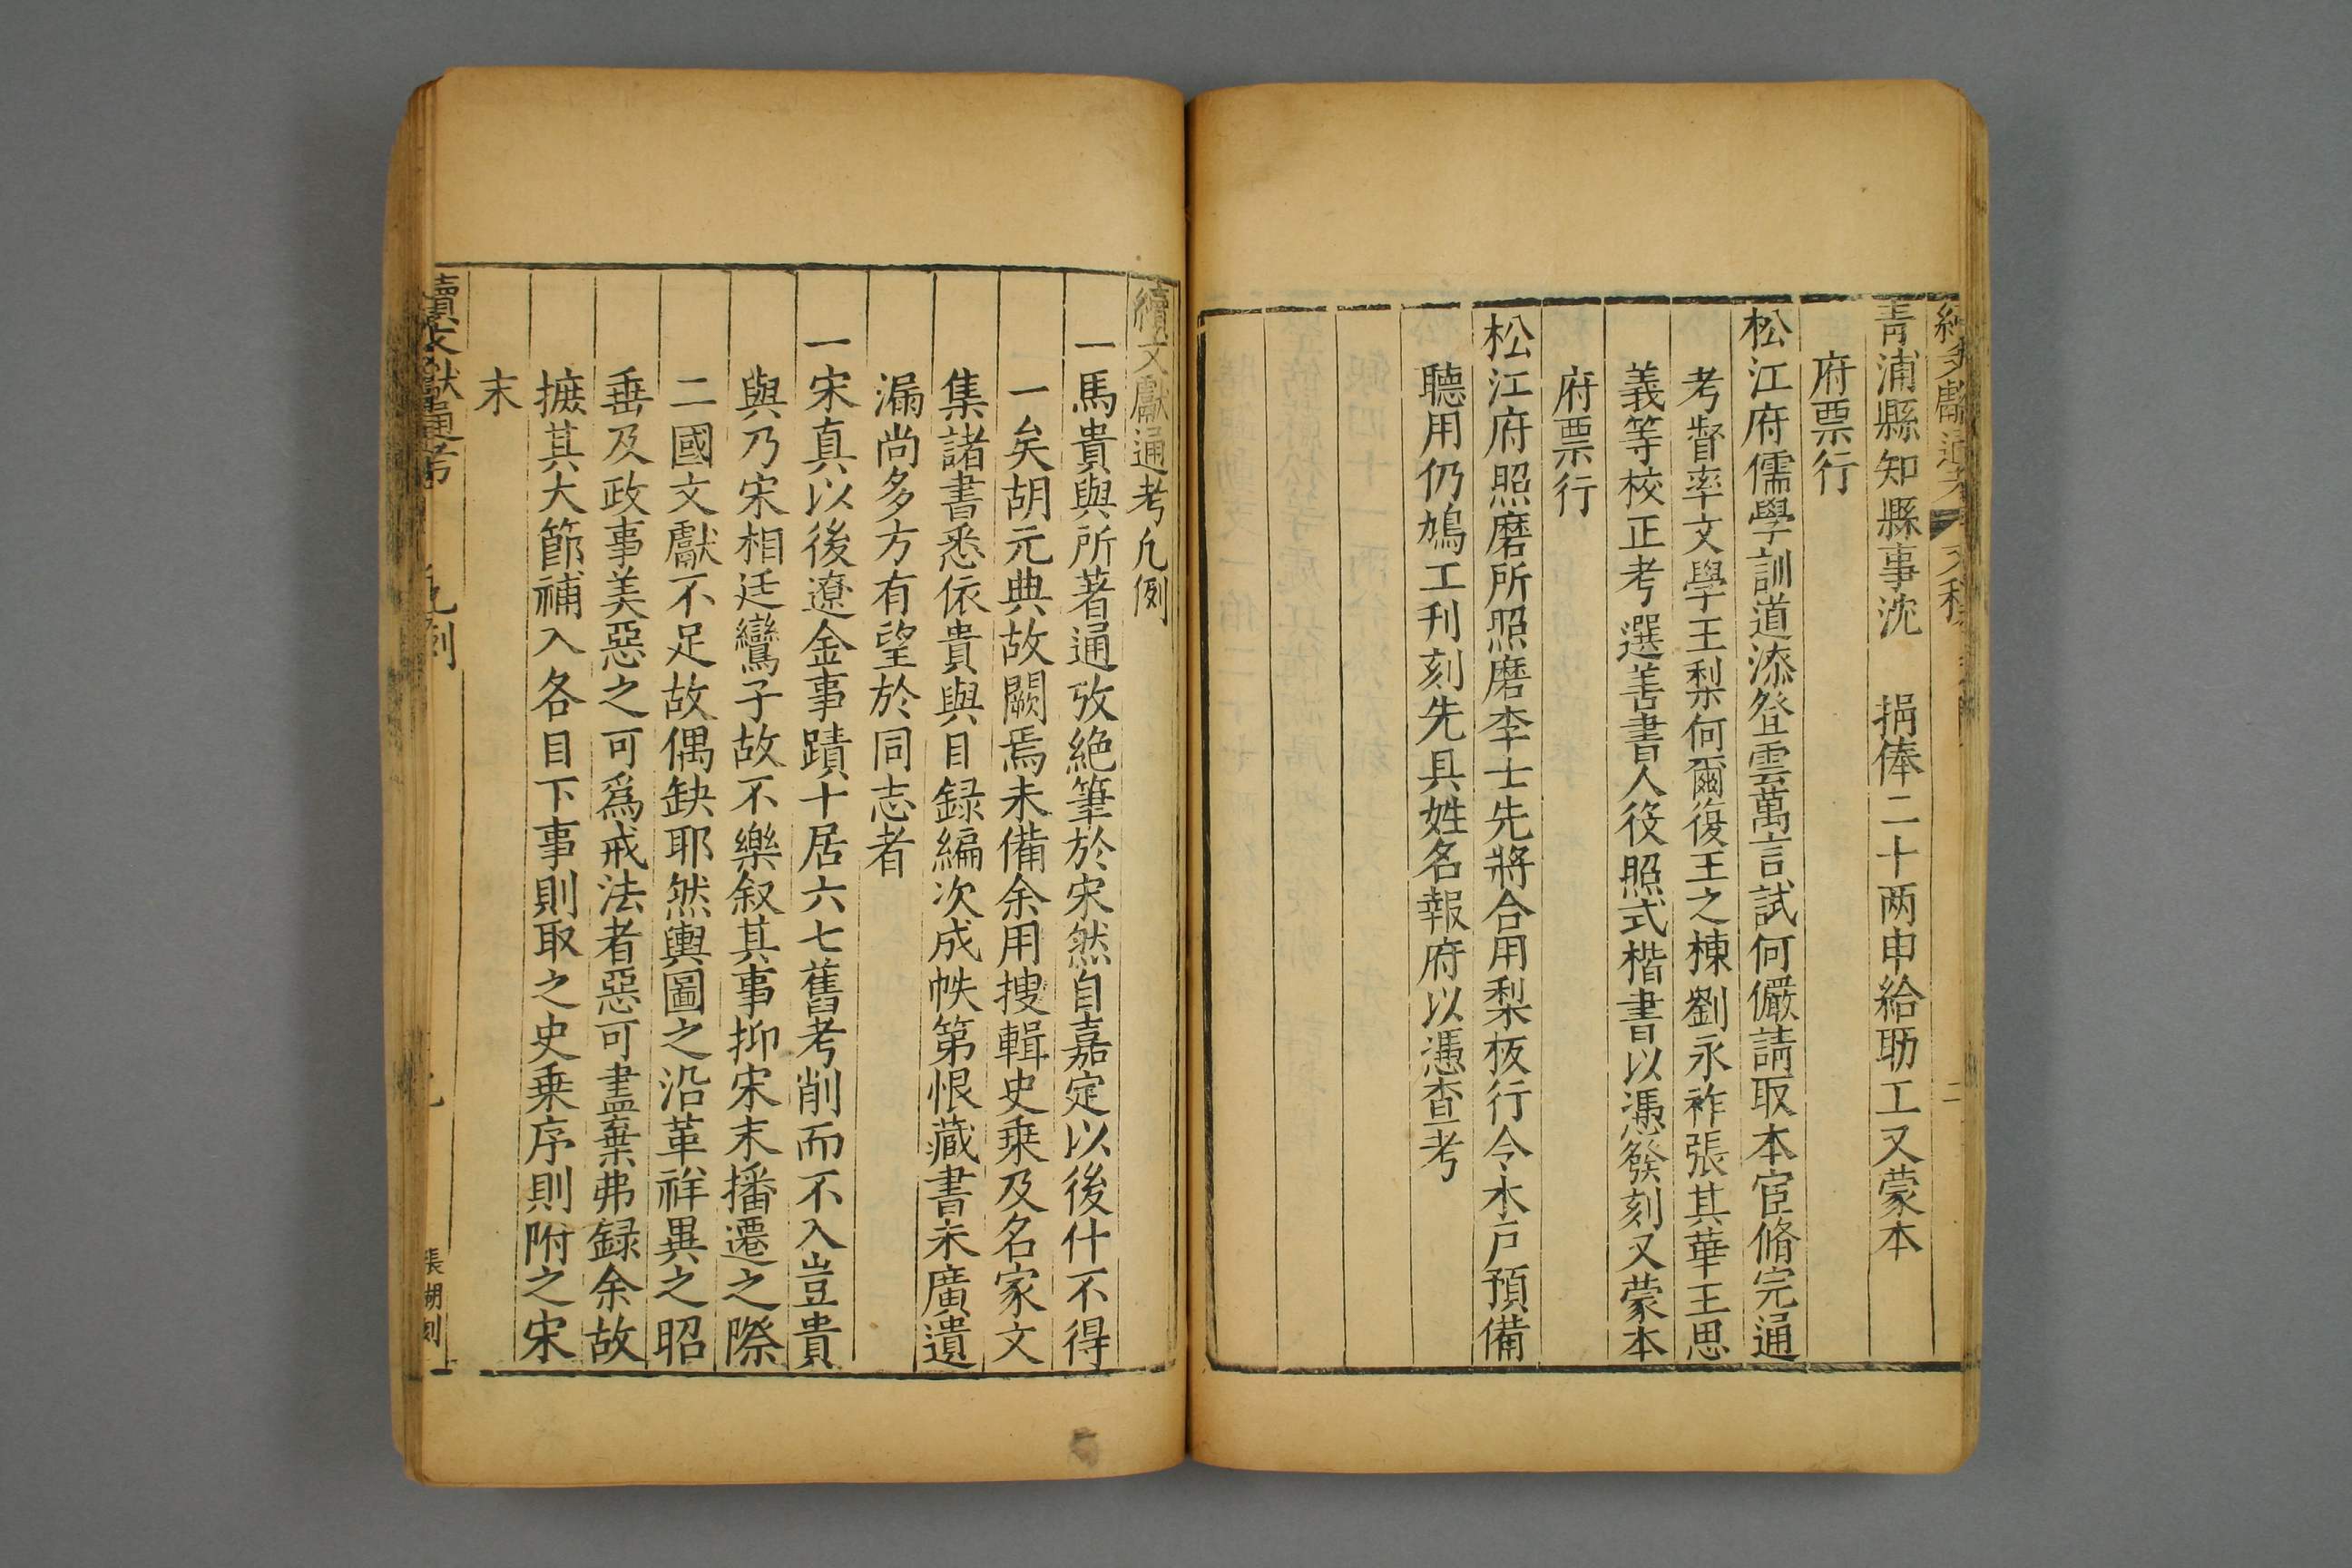 青浦縣知縣事沈　捐俸二十两申給助工又蒙本
府票行
松江府儒學訓道添登雲萬言試何儼請取本宦脩完通
考督率文學王梨何爾復王之棟劉永祚張其華王思
義等校正考選善書人役照式楷書以憑發刻又蒙本
府票行
松江府照磨所照磨李士先將合用梨板行令木戶預備
聽用仍鳩工刊刻先具姓名報府以憑查考
續文獻通考凡例
一馬貴與所著通攷絶筆於宋然自嘉定以後什不得
一矣胡元典故闕焉未備余用捜輯史乗及名家文
集諸書悉依貴與目録編次成帙第恨藏書未廣遺
漏尚多方有望於同志者
一宋真以後遼金事蹟十居六七舊考削而不入豈貴
與乃宋相廷鸞子故不樂叙其事抑宋末播遷之際
二國文獻不足故偶缺耶然輿圖之沿革祥異之昭
垂及政事美惡之可爲戒法者惡可盡棄弗録余故
摭其大節補入各目下事則取之史乗序則附之宋
末
續文獻通考
凡例
張湖刻